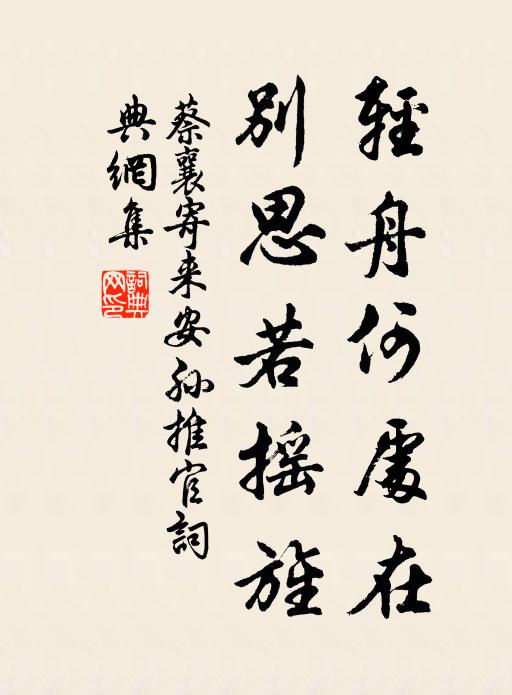 輕舟何處在
別思若摇旌
蔡襄寄来安孫推官詞
典網集
詞典
网印